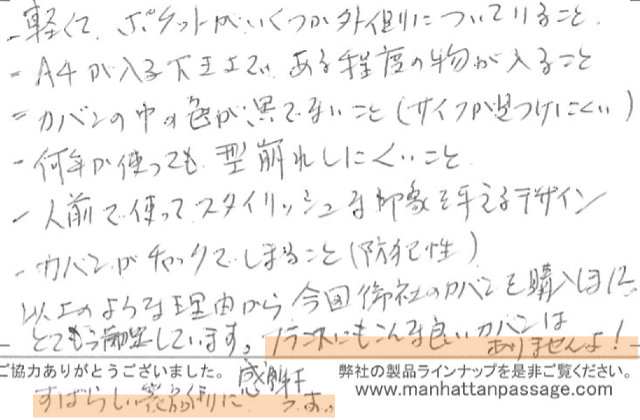 - 軽くて、ポケットがいくつか外側についていること。
- A4が入る大きさで、ある程度の物が入ること
- カバンの中の色が黒でないこと(サイフが見つけにくい)
- 何年か使っても、型崩れしにくいこと
- 人前で使ってスタイリッシュな印象を与えるデザイン
- カバンがチャックでしまること(防犯性)
以上のような理由から今回御社のカバンを購入し
とても満足しています。フランスにもこんな良いカバンは
ありませんよ!
ご協力ありがとうございました。
弊社の製品ラインナップを是非ご覧ください。
www.manhattanpassage.com
すばらしい に 感謝
です。